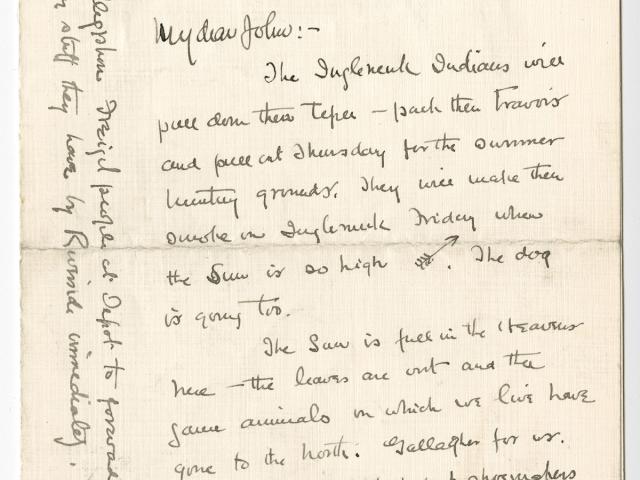 My dear John:-
The Ingleneuk Indians will
pull down their Tepee - pack their Travois
and pull out Thursday for the summer
hunting grounds. They will make their
smoke in Ingleneuk Friday when
the Sun is so high . The dog
is going too.
The Sun is full in the Heavens
here - the leaves are out and the
game animals on which we live have
gone to the north. Gallagher for us.
shoemakers
Freight people at Depot to forward
stuff they have by Riverside immediately.